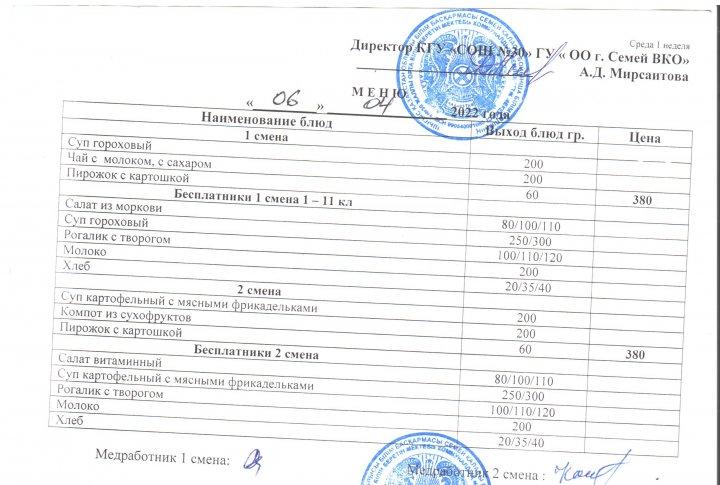 Среда 1 неделя
Директор КГУ «СОШ №30» ГУ « ОО г. Семей ВКО»
А.Д. Мирсаитова
МЕНЮ
« 06 » 04 2022 года
Наименование блюд Выход блюд гр. Цена
1 смена
Суп гороховый 200
Чай с молоком, с сахаром 200
Пирожок с картошкой 60 380
Бесплатники 1 смена 1 – 11 кл
Салат из моркови 80/100/110
Суп гороховый 250/300
Рогалик с творогом 100/110/120
Молоко 200
Хлеб 20/35/40
2 смена
Суп картофельный с мясными фрикадельками 200
Компот из сухофруктов 200
Пирожок с картошкой 60 380
Бесплатники 2 смена
Салат витаминный 80/100/110
Суп картофельный с мясными фрикадельками 250/300
Рогалик с творогом 100/110/120
Молоко 200
Хлеб 20/35/40
Медработник 1 смена:
Медработник 2 смена :